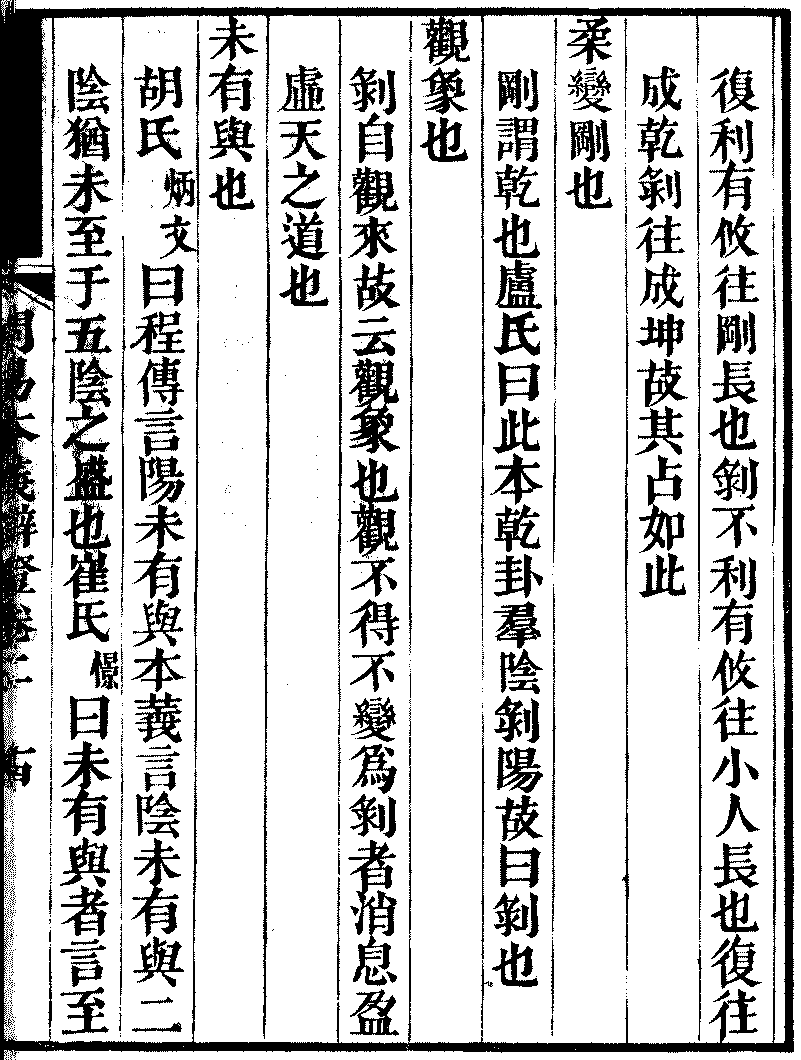 復利有攸往剛長也剝不利有攸往小人長也復往
成乾剝往成坤故其占如此
柔變剛也
剛謂乾也盧氏曰此本乾卦羣陰剝陽故曰剝也
觀象也
剝自觀來故云觀象也觀不得不變爲剝者消息盈
虛天之道也
未有與也
胡氏炳文曰程傳言陽未有與本義言陰未有與二
陰猶未至于五陰之盛也崔氏憬曰未有與者言至
周易本義辨證卷二